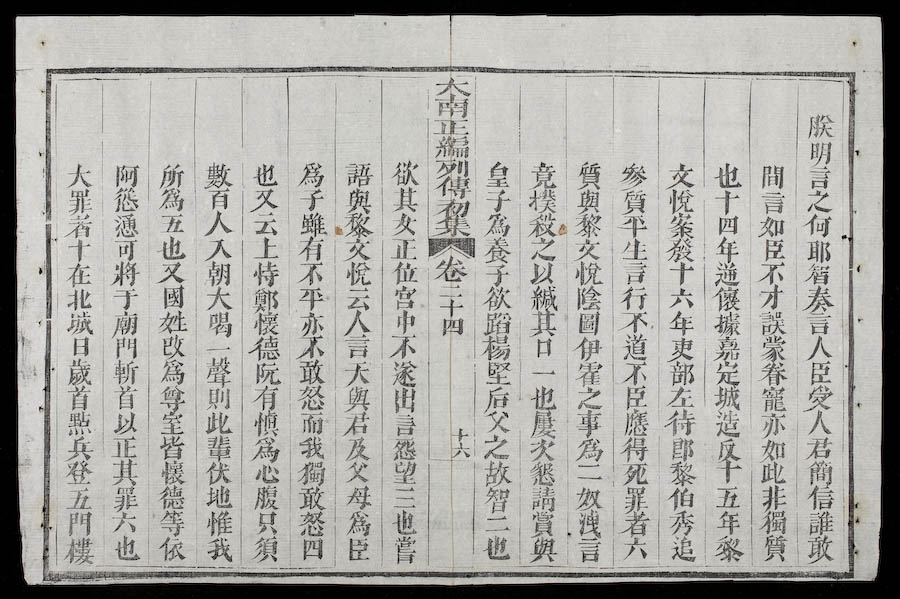 朕明言之何耶智奏言人臣受人君簡信誰敢
間言如臣不才誤蒙眷寵亦如此非獨質
也十四年逆懷據嘉定城造反十五年黎
文悅案發十六年吏部左侍郎黎伯秀追
參質平生言行不道不臣應得死罪者六
質與黎文悅陰圖伊霍之事為二奴洩言
竟撲殺之以緘其口一也屢次懇請賞與
皇子為養子欲蹈楊堅后父之故智二也
大南正編列傳初集 卷二十四 十六
欲其女正位宮中不遂出言怨望三也嘗
語與黎文悅云人言大與君及父母為臣
為子雖有不平亦不敢怒而我獨敢怒四
也又云上恃鄭懷德阮有慎為心腹只須
數百人入朝大喝一聲則此輩伏地惟我
所為五也又國姓改為尊室皆懷德等依
阿慫慂可將于廟門斬首以正其罪六也
大罪者十在北城日歲首點兵登五門樓